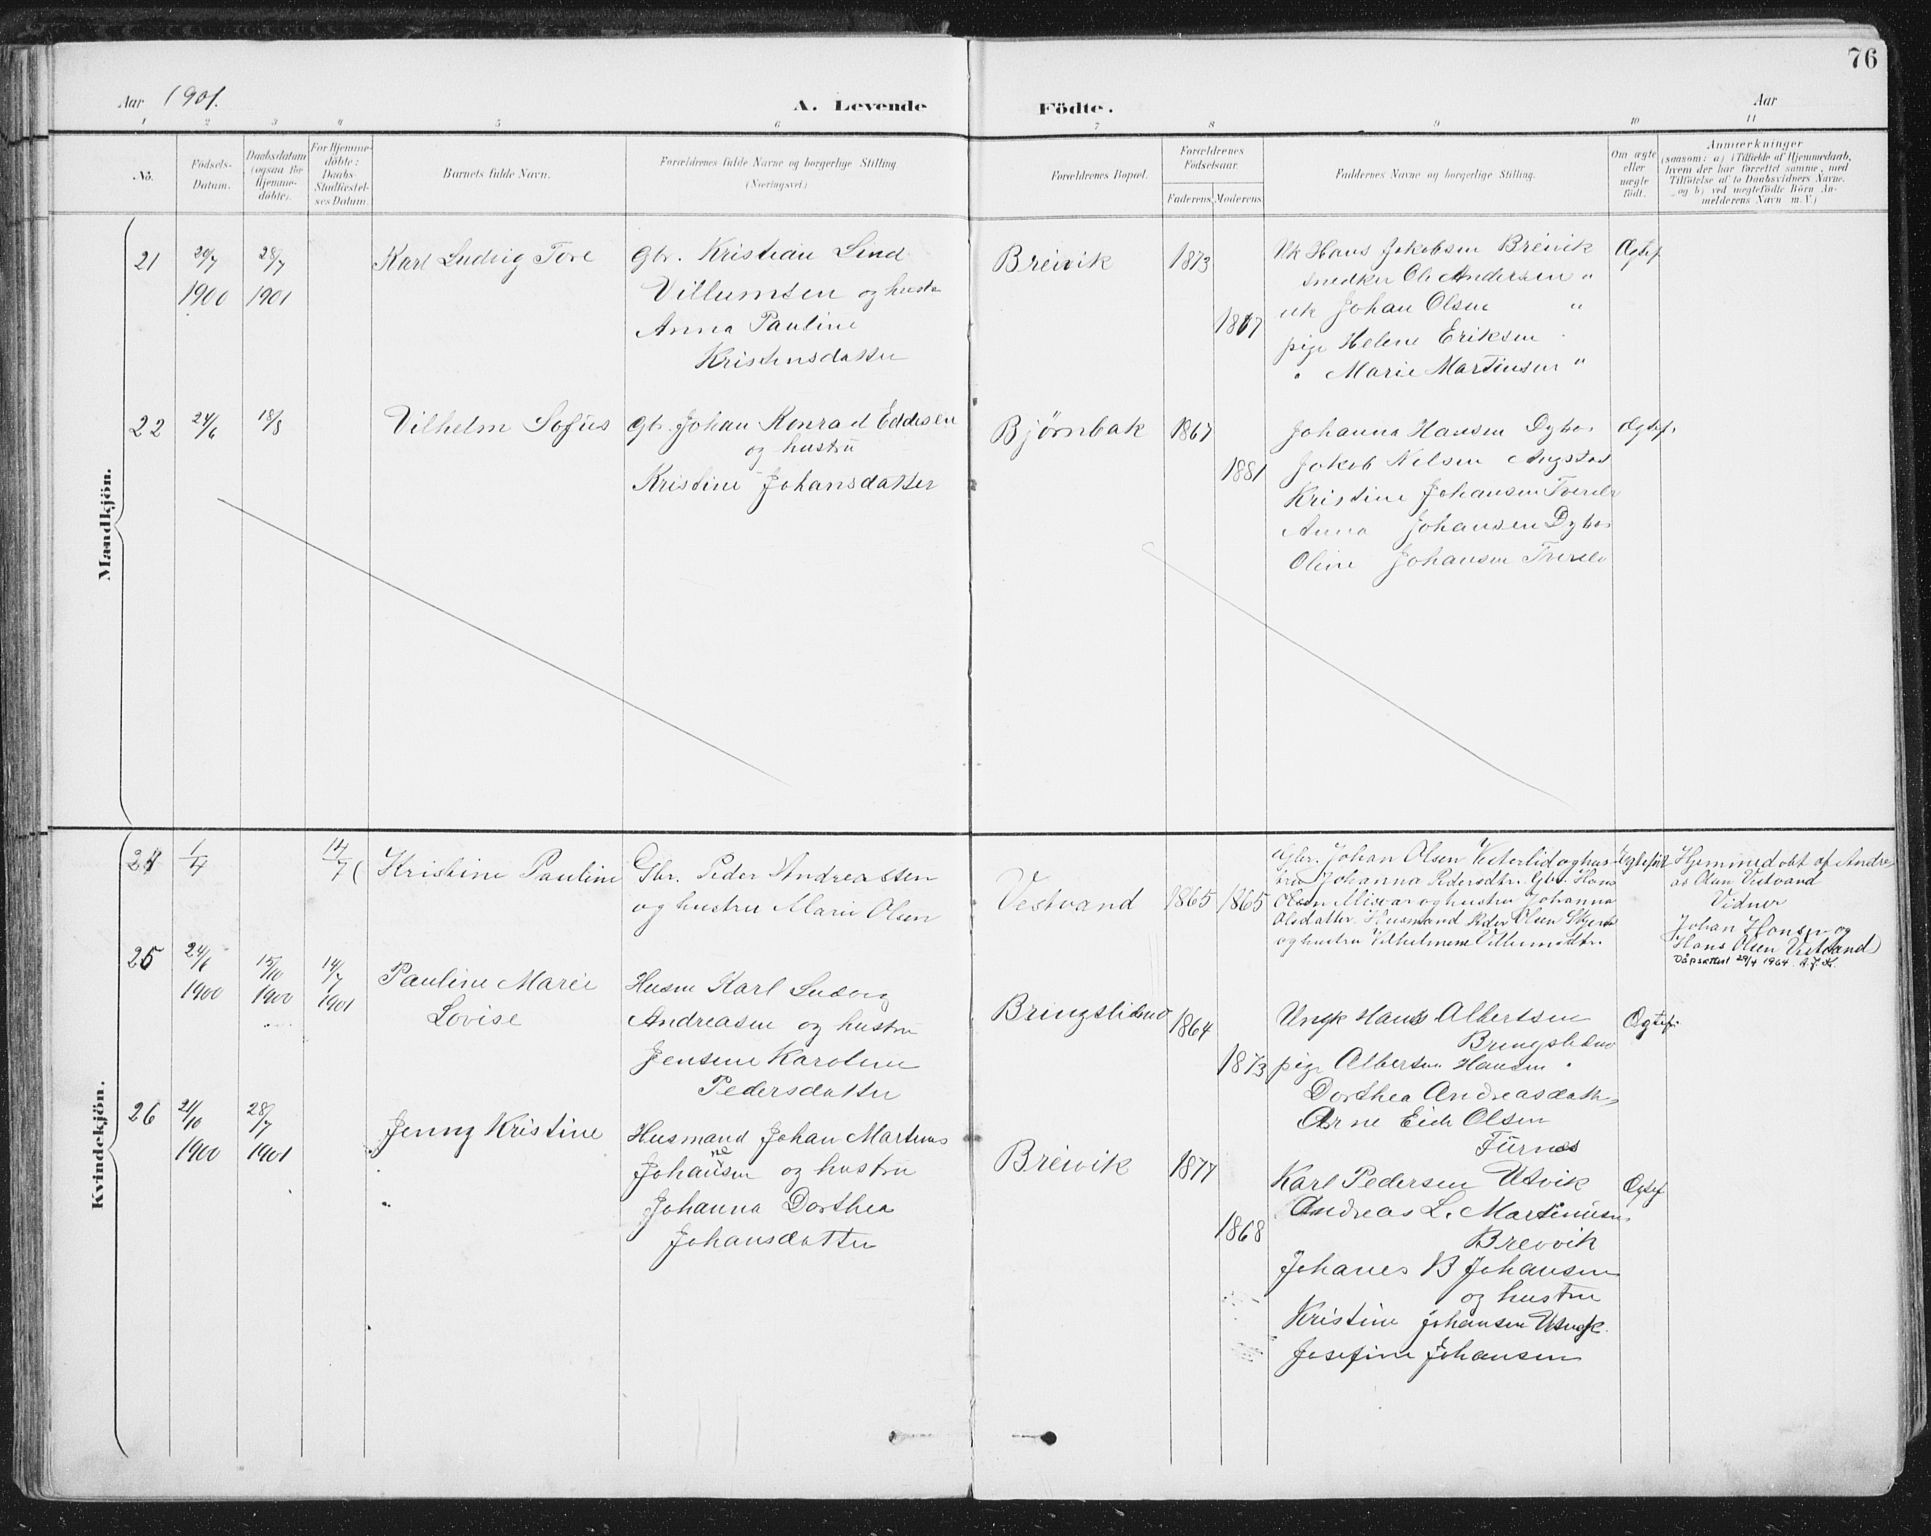 76
Aar 1901.
A. Levende Födte.
Aar
1 2 3 4 5 6 7 8 9 10 11
No.
Födsels-
Datum.
Daabsdatum
(ogsaa for
Hjemme-
döbte).
For Hjemme-
döbte:
Daabs-
Stadfæstel-
ses Datum.
Barnets fulde Navn.
Forældrenes fulde Navne og borgerlige Stilling
(Næringsvei)
Forældrenes Bopæl.
Forældrenes
Födselsaar.
Faderens Moderens
Faddernes Navne og borgerlige Stilling.
Om ægte
eller
uægte
födt.
Anmærkninger
(saasom: a) i Tilfælde af Hjemmedaab,
hvem der har forrettet samme, med
Tilföielse af to Daabsvidners Navne.
og b) ved uægtefödte Börn An-
melderens Navn m. V.)
Mandkjön.
21
20/7
1900
28/7
1901
Karl Ludvig Tore
Gbr. Kristian Lind
Villumsen og hustr
Anna Pauline
Kristensdatter
Breivik
1873
1867
Uk Hans Jokobsen Breivik
Snedker Ole Andersen "
uk Johan Olsen "
pige Helene Eriksen
" Marie Martinsen "
Ægtef
22
24/6
18/8
Vilhelm Sofus
Gbr. Johan Konrad Eddisen
og hustru
Kristine Johansdatter
Bjørnbak
1867
1881
Johanna Hansen
Jokob Nilsen
Kristine Johansen
Anna Johansen
Oline Johansen
Ægtef.
Kvindekjön.
24
1/4
14/7
Kristine Pauline
Gbr. Peder Andreassen
og hustru Marie Olsen
Vestvand
1865
1865
Gbr. Johan Olsen Vesterlid og hus-
tru Johanna Pedersdtr. Gbr. Hans
Olsen Misvær og hustru Johanna
Olsdatter. Husmand Peder Olsen
og hustru Vilhelmine Villumsdtr.
Ægtefödt
Hjemmedøbt af Andre-
as Olsen Vestvand
Vidner
Johan Hansen og
Hans Olsen Vestvand
Dåpsattest 29/4 1964
25
24/6
1900
15/10
1900
14/7
1901
Pauline Marie
Lovise
Husm Karl Ludvig
Andreasen og hustru
Jensine Karoline
Pedersdatter
Bringslidmo
1864
1873
Ungk Hans Albertsen
Bringslidmo
pige Albertine Hansen "
Dorthea Andreasdatter
Arne Eide Olsen
Furnes
Ægtef.
26
21/10
1900
28/7
1901
Jenny Kristine
Husmand Johan Martinus
Johansen og hustru
Johanna Dorthea
Johansdatter
Breivik
1877
1868
Karl Pedersen Utvik
Andreas L. Martinusen
Breivik
Johanes B Johansen
og hustru
Kristine Johansen
Josefine Johansen
Ægtef